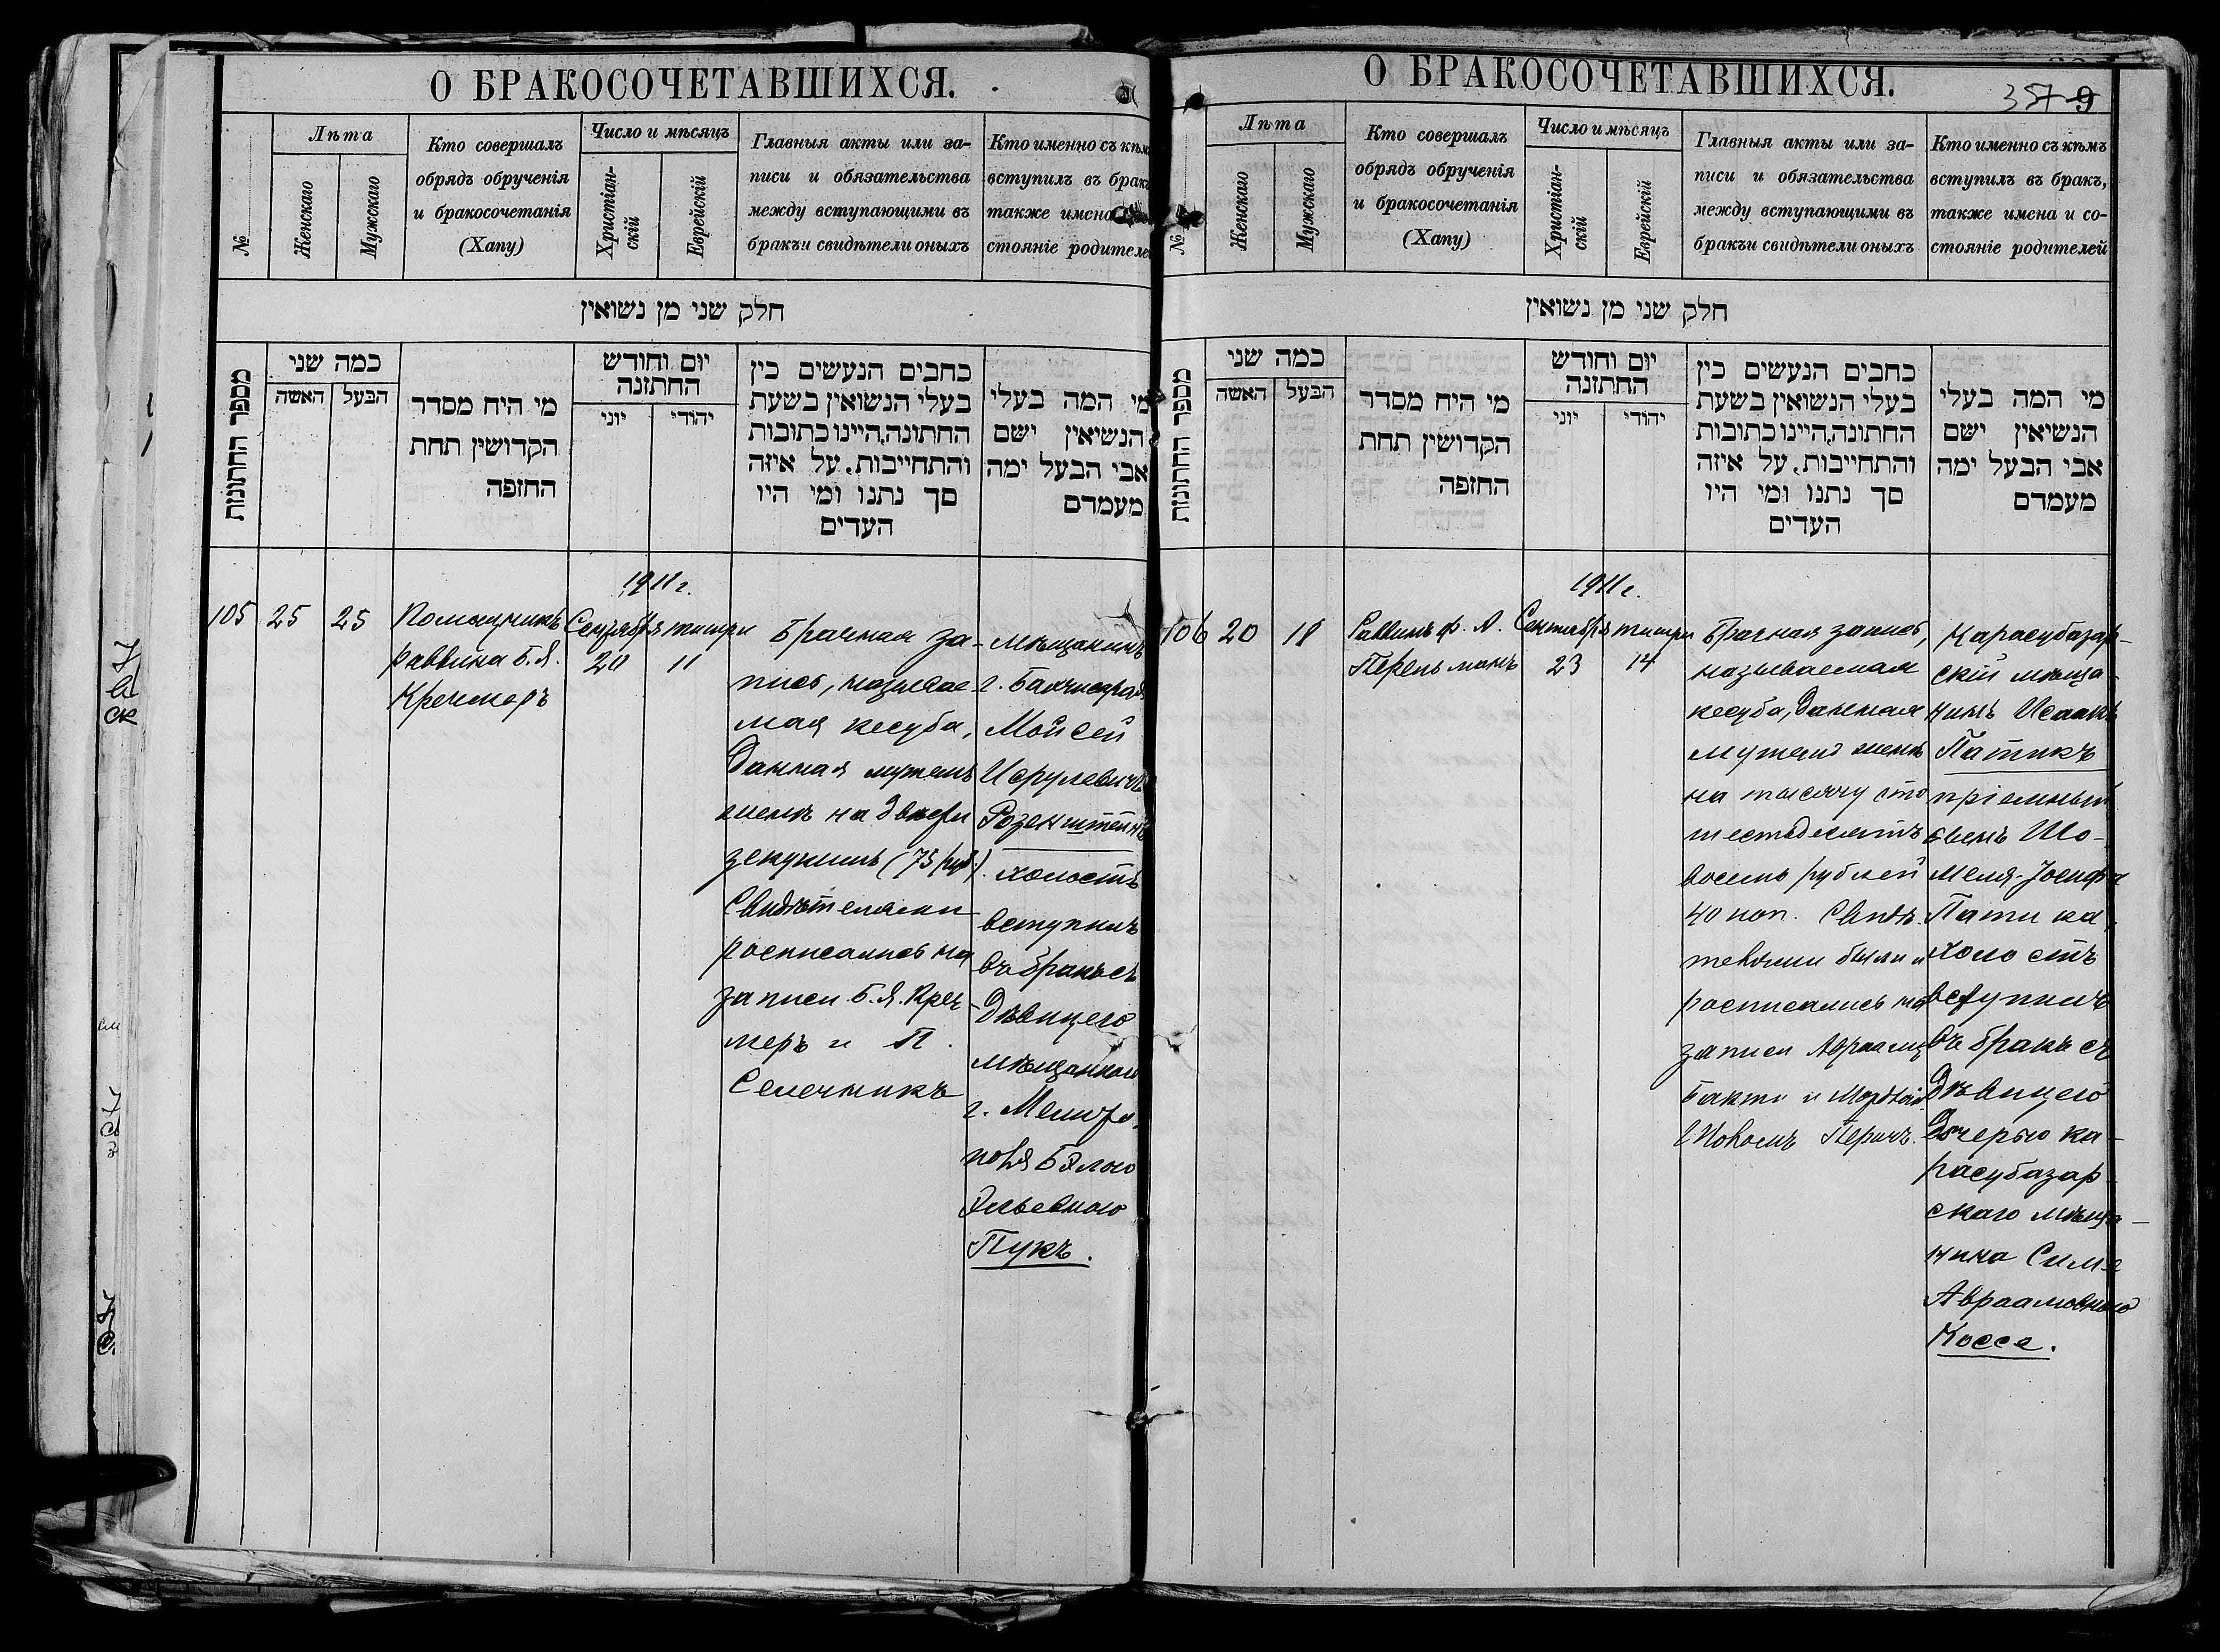 О БРАКОСОЧЕТАВШИХСЯ.
№
Лѣта
Женскаго
Мужскаго
Кто совершалъ
обрядъ обрученія
и бракосочетанія
(Хапу)
Число и мѣсяцъ
Христіан-
скій
Еврейскій
Главныя акты или за-
писи и обязательства
между вступающими въ
бракъи свидѣтели оныхъ
Кто именно съ кѣмъ
вступилъ въ бракъ
также имена
стояніе родителей
חלק שני מן נשואין
מספר החתונות
כמה שני
האשה
הבעל
מי היח מסדר
הקדושין תחת
החופה
יום וחודש
החתונה
יוני
יהודי
כחבים הנעשים כין
בעלי הנשואין בשעת
החתונה,היינו כתובות
והתחייבות. על איזה
סך נתנו ומי היו
העדים
מי המה בעלי
הנשיאין ישם
אבי הבעל ימה
מעמדם
105
25
25
Помощникъ
раввина Б. Я.
Кречмеръ
1911 г.
Сентября
20
тишри
11
Брачная за-
пись, называе-
мая кесуба,
данная мужемъ
женѣ на двѣсти
зекукимъ (75 руб.).
Свидѣтелями
росписались на
записи Б. Я. Креч-
меръ и П.
Селечникъ
мѣщанинъ
г. Бахчисрая
Мойсей
Исрулевичъ
Розенштейнъ
холостъ
вступилъ
въ бракъ съ
дѣвицею
мѣщанкой
г. Мелито-
поля Бэлою
Эльевною
Пукъ.
О БРАКОСОЧЕТАВШИХСЯ.
357
9
№
Лѣта
Женскаго
Мужскаго
Кто совершалъ
обрядъ обрученія
и бракосочетанія
(Хапу)
Число и мѣсяцъ
Христіан-
скій
Еврейскій
Главныя акты или за-
писи и обязательства
между вступающими въ
бракъи свидѣтели оныхъ
Кто именно съ кѣмъ
вступилъ въ бракъ,
также имена и со-
стояніе родителей
חלק שני מן נשואין
מספר החתונות
כמה שני
האשה
הבעל
מי היח מסדר
הקדושין תחת
החופה
יום וחודש
החתונה
יוני
יהודי
כחבים הנעשים כין
בעלי הנשואין בשעת
החתונה,היינו כתובות
והתחייבות. על איזה
סך נתנו ומי היו
העדים
מי המה בעלי
הנשיאין ישם
אבי הבעל ימה
מעמדם
106
20
18
Раввинъ Ф. А.
Перельманъ
1911 г.
Сентября
23
тишри
14
Брачная запись,
называемая
кесуба, данная
мужемъ женѣ
на тысячу сто
шестьдесятъ
восемь рублей
40 коп. Свидѣ-
телями были и
росписались на
записи
Бакши и Мордхай
Перичъ.
Карасубазар-
скій мѣща-
нинъ Исаакъ
Патикъ
пріемный
сынъ Шо-
меля-Іосифа
Патика,
холостъ
вступилъ
въ бракъ съ
дѣвицею
дочерью ка-
расубазар-
скаго мѣща-
нина Симе
Авраамовною
Коссе.